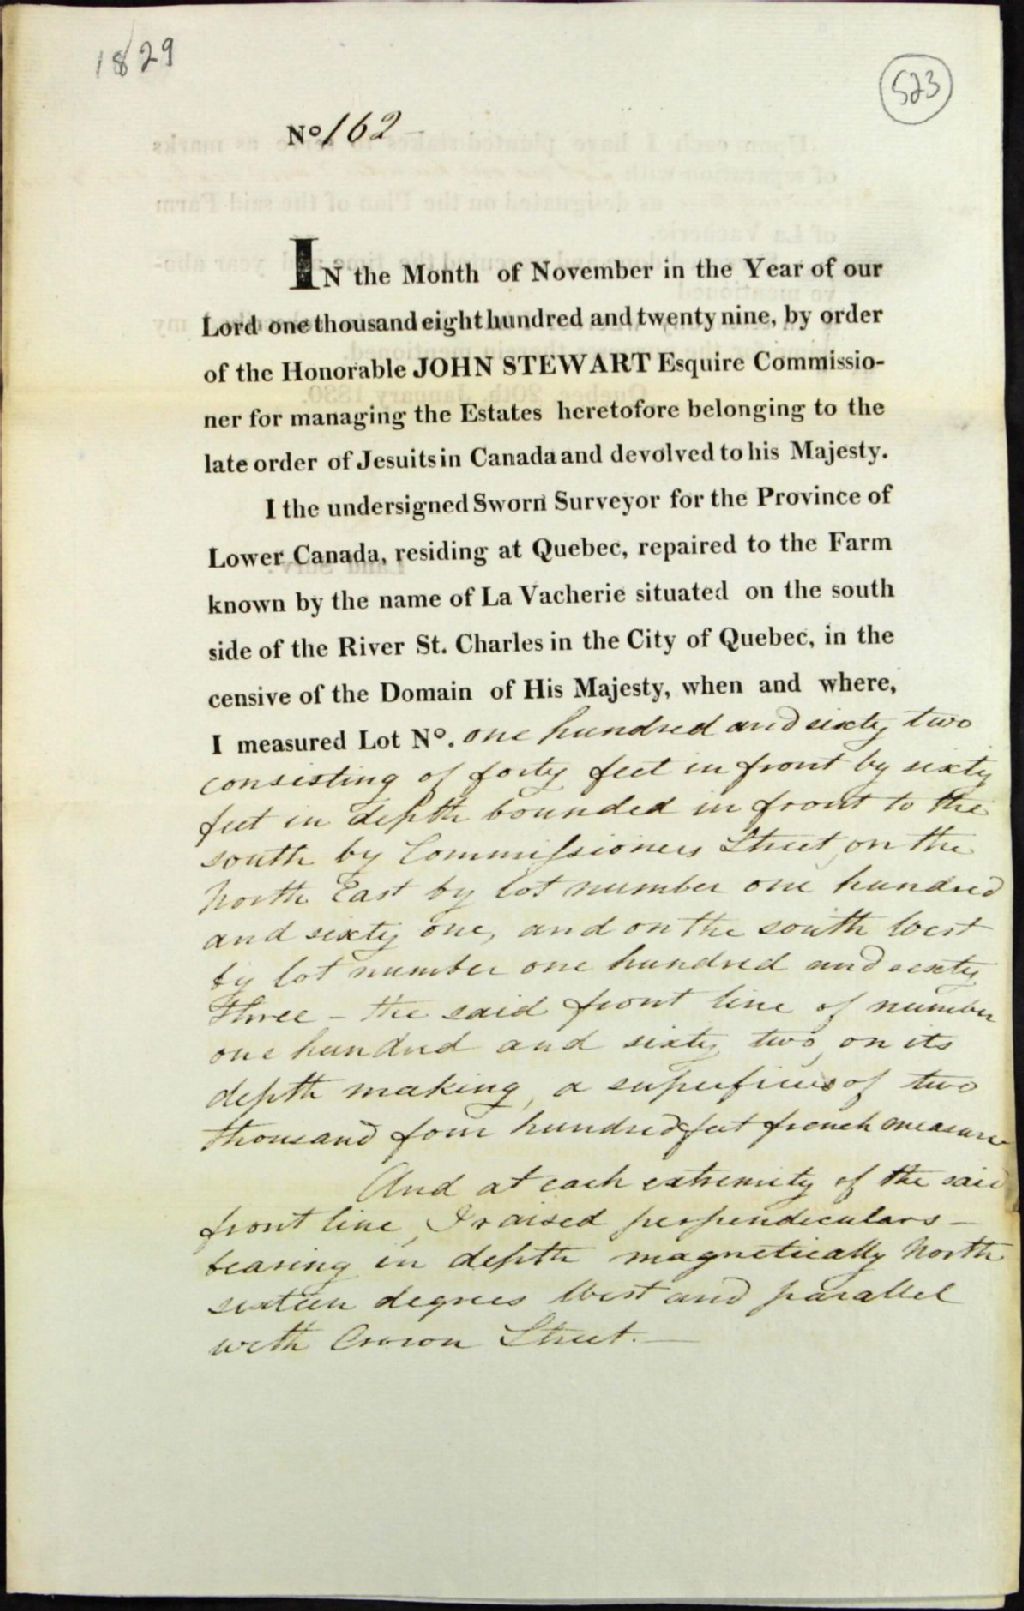 1829
523
No 162
IN the Month of November in the Year of our
Lord one thousand eight hundred and twenty nine, by order
of the Honorable JOHN STEWART Esquire Commissio-
ner for managing the Estates heretofore belonging to the
late order of Jesuits in Canada and devolved to his Majesty.
I the undersigned Sworn Surveyor for the Province of
Lower Canada, residing at Quebec, repaired to the Farm
known by the name of La Vacherie situated on the south
side of the River St. Charles in the City of Quebec, in the
censive of the Domain of His Majesty, when and where,
I measured Lot No. one hundred and sixty two
consisting of forty feet in front by sixty
feet in depth bounded in front to the
south by Commissioners Street, on the
North East by lot number one hundred
and sixty one, and on the south West
by lot number one hundred and sixty
three – the said front line of number
one hundred and sixty two, on its
depth making, a superficies of two
thousand four hundred feet french measure
And at each extremity of the said
front line, I raised perpendiculars –
bearing in depth magnetically North
sixteen degrees West and parallel
with Crown Street. –